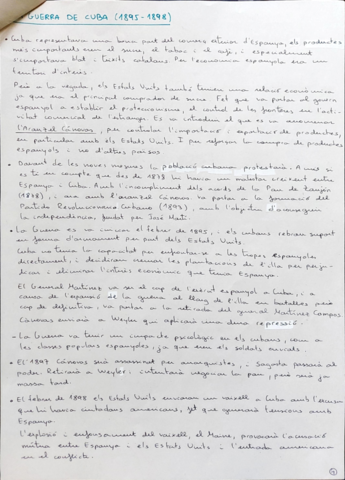 GUERRA DE CUBA (1895-1898)
Cuba representava una bona part del comerç exterior d'Espanya, els productes
més importants eren el sucre, el tabac i el cafè, i especialment
s'importava blat i teixits catalans. Per l'economia espanyola era un
territori d'interès.
Però a la vegada, els Estats Units també tenien una relació econòmica
ja que era el principal comprador de sucre. Fet que va portar al govern
espanyol a establir el proteccionisme, el control de les fronteres en l'acti-
vitat comercial de l'estranger. Es va introduir el que es va anomenar
l'Aranzel Cánovas, per controlar l'importació i exportació de productes,
en particular amb els Estats Units. I per reforçar la compra de productes
espanyols i no d'altres països.
Davant de les noves mesures la població cubana protestarà. A més si
es té en compte que des de 1878 hi havia un malestar creixent entre
Espanya i Cuba. Amb l'incompliment dels acords de la Pau de Zanjón
(1878), i ara amb l'aranzel Cánovas va portar a la formació del
Partido Revolucionario Cubano (1892), amb l'objectiu d'aconseguir
la independència, fundat per José Martí.
La Guerra es va iniciar el febrer de 1895, i els cubans rebien suport
en forma d'armament per part dels Estats Units.
Cuba no tenia la capacitat per enfrontar-se a les tropes espanyoles
directament, i decidiren cremar les plantacions de l'illa per perju-
dicar i eliminar l'interès econòmic que tenia Espanya.
El General Martínez va ser el cap de l'exèrcit espanyol a Cuba, i a
causa de l'expansió de la guerra al llarg de l'illa en batalles però
cap de definitiva, va portar a la retirada del general Martínez Campos.
Cánovas enviarà a Weyler qui aplicarà una dura repressió.
La Guerra va tenir un impacte psicològic en els cubans, com a
les classes populars espanyoles, ja que eren els soldats enviats.
El 1897 Cánovas serà assassinat per anarquistes, i Sagasta passarà al
poder. Retirarà a Weyler i intentarà negociar la pau, però serà ja
massa tard.
El febrer de 1898 els Estats Units enviaran un vaixell a Cuba amb l'excusa
que hi havia ciutadans americans, fet que generarà tensions amb
Espanya.
L'explosió i enfonsament del vaixell, el Maine, provocarà l'acusació
mútua entre Espanya i els Estats Units i l'entrada americana
en el conflicte.